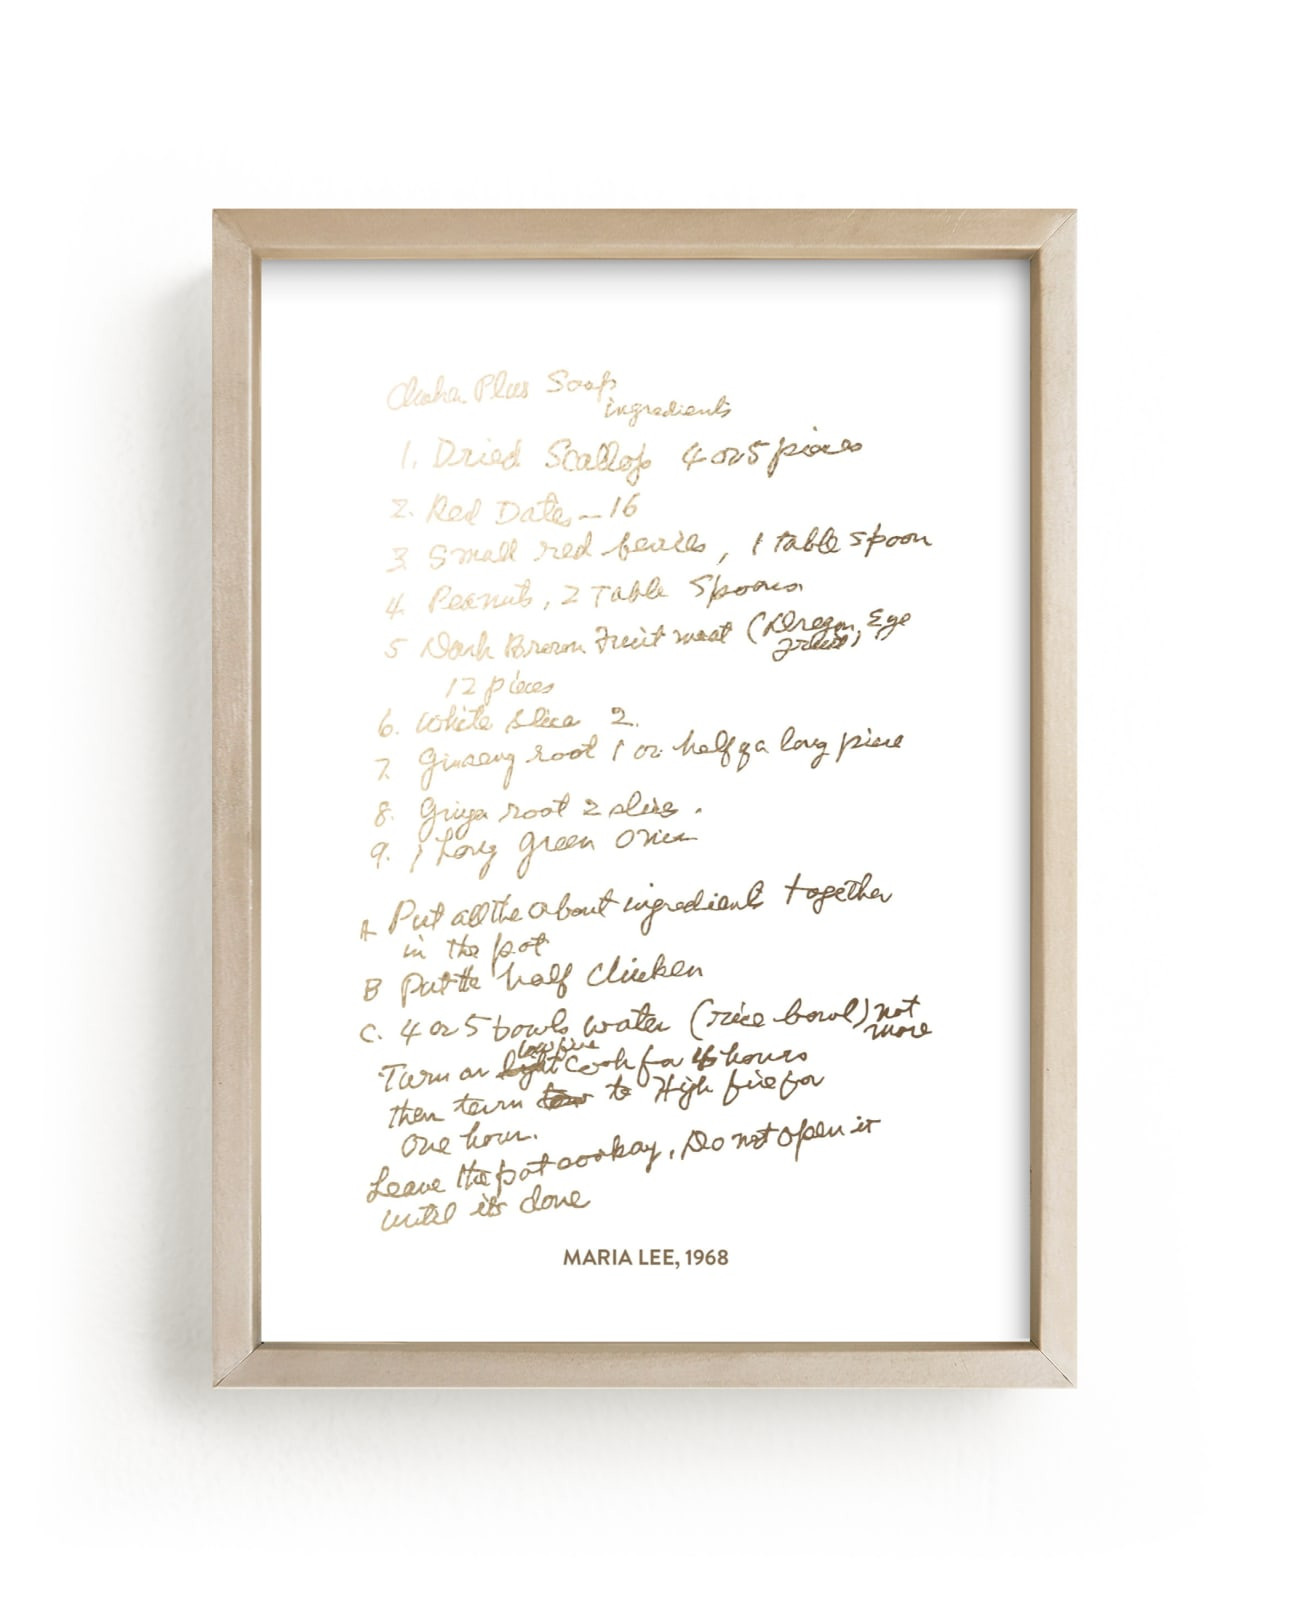 Plus Soap
ingredients
1. Dried Scallop 4 or 5 pieces
2. Red Dates - 16
3. Small red berries, 1 table spoon
4. Peanuts, 2 Table Spoons
5 Dark Brown Fruit meat (Dragon Eye
fruit)
12 pieces
6. White slice 2.
7. Ginseng root 1 or half of a long piece
8. Ginger root 2 slices.
9. 1 Long green onion
A Put all the about ingredients together
in the pot
B Put the half chicken
C. 4 or 5 bowls water (rice bowl) not
more
low fire
Turn on light cook for hours
then turn to High fire for
one hour.
Leave the pot . Do not open it
until its done
MARIA LEE, 1968